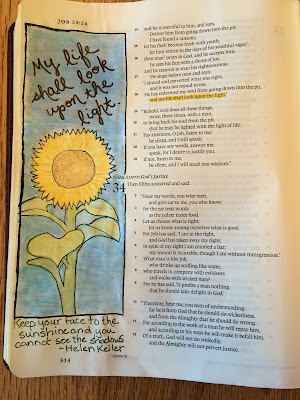 JOB 33:24
My life
shall look
upon the
light.
Keep your face to the
sunshine and you
cannot see the shadows
-Helen Keller
514
24 and he is merciful to him, and says,
'Deliver him from going down into the pit;
I have found a ransom;
25 let his flesh become fresh with youth;
let him return to the days of his youthful vigor';
26 then man prays to God, and he accepts him;
he sees his face with a shout of joy,
and he restores to man his righteousness.
27 He sings before men and says:
'I sinned and perverted what was right,
and it was not repaid to me.
28 He has redeemed my soul from going down into the pit,
and my life shall look upon the light.'
29 "Behold, God does all these things,
twice, three times, with a man,
30 to bring back his soul from the pit,
that he may be lighted with the light of life.
31 Pay attention, O Job, listen to me;
be silent, and I will speak.
32 If you have any words, answer me;
speak, for I desire to justify you.
33 If not, listen to me;
be silent, and I will teach you wisdom."
Asserts God's Justice
34 Then Elihu answered and said:
2 "Hear my words, you wise men,
and give ear to me, you who know;
3 for the ear tests words
as the palate tastes food.
4 Let us choose what is right;
let us know among ourselves what is good.
5 For Job has said, 'I am in the right,
and God has taken away my right;
6 in spite of my right I am counted a liar;
my wound is incurable, though I am without transgression.'
7 What man is like Job,
who drinks up scoffing like water,
8 who travels in company with evildoers
and walks with wicked men?
9 For he has said, 'It profits a man nothing
that he should take delight in God.'
10 "Therefore, hear me, you men of understanding:
far be it from God that he should do wickedness,
and from the Almighty that he should do wrong.
11 For according to the work of a man he will repay him,
and according to his ways he will make it befall him.
12 Of a truth, God will not do wickedly,
and the Almighty will not pervert justice.